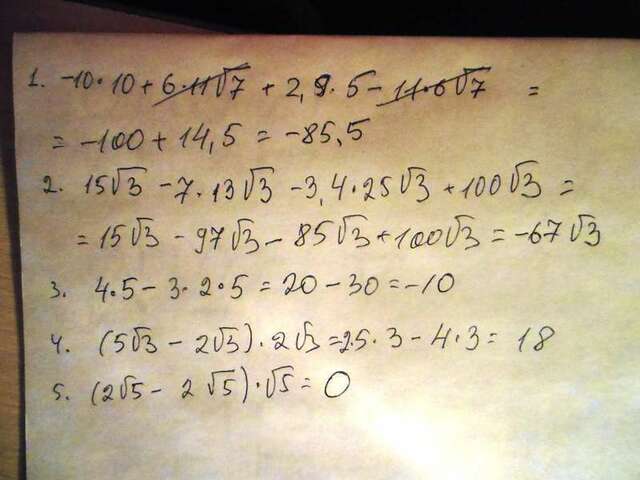 1. -10·10+6·11√7 + 2,9·5-11·6√7 =
= -100+14,5 = -85,5
2. 15√3 -7·13√3 -3,4·25√3 +100√3 =
= 15√3 - 97√3 - 85√3+100√3 = -67√3
3. 4·5 - 3·2·5 = 20 - 30 = -10
4. (5√3 - 2√3)·2√3=2·5·3-4·3= 18
5. (2√5 - 2√5)·√5 = 0